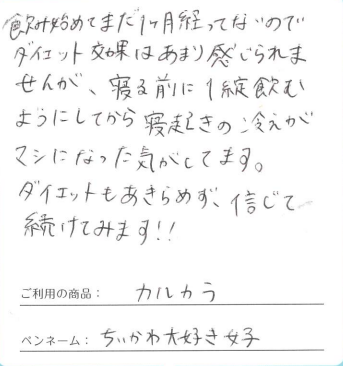 飲み始めてまだ1ヶ月経ってないので
ダイエット効果はあまり感じられま
せんが、寝る前に1錠飲む
ようにしてから寝起きの冷えが
マシになった気がしてます。
ダイエットもあきらめず、信じて
続けてみます!!
ご利用の商品： カルカラ
ペンネーム： ちいかわ大好き女子